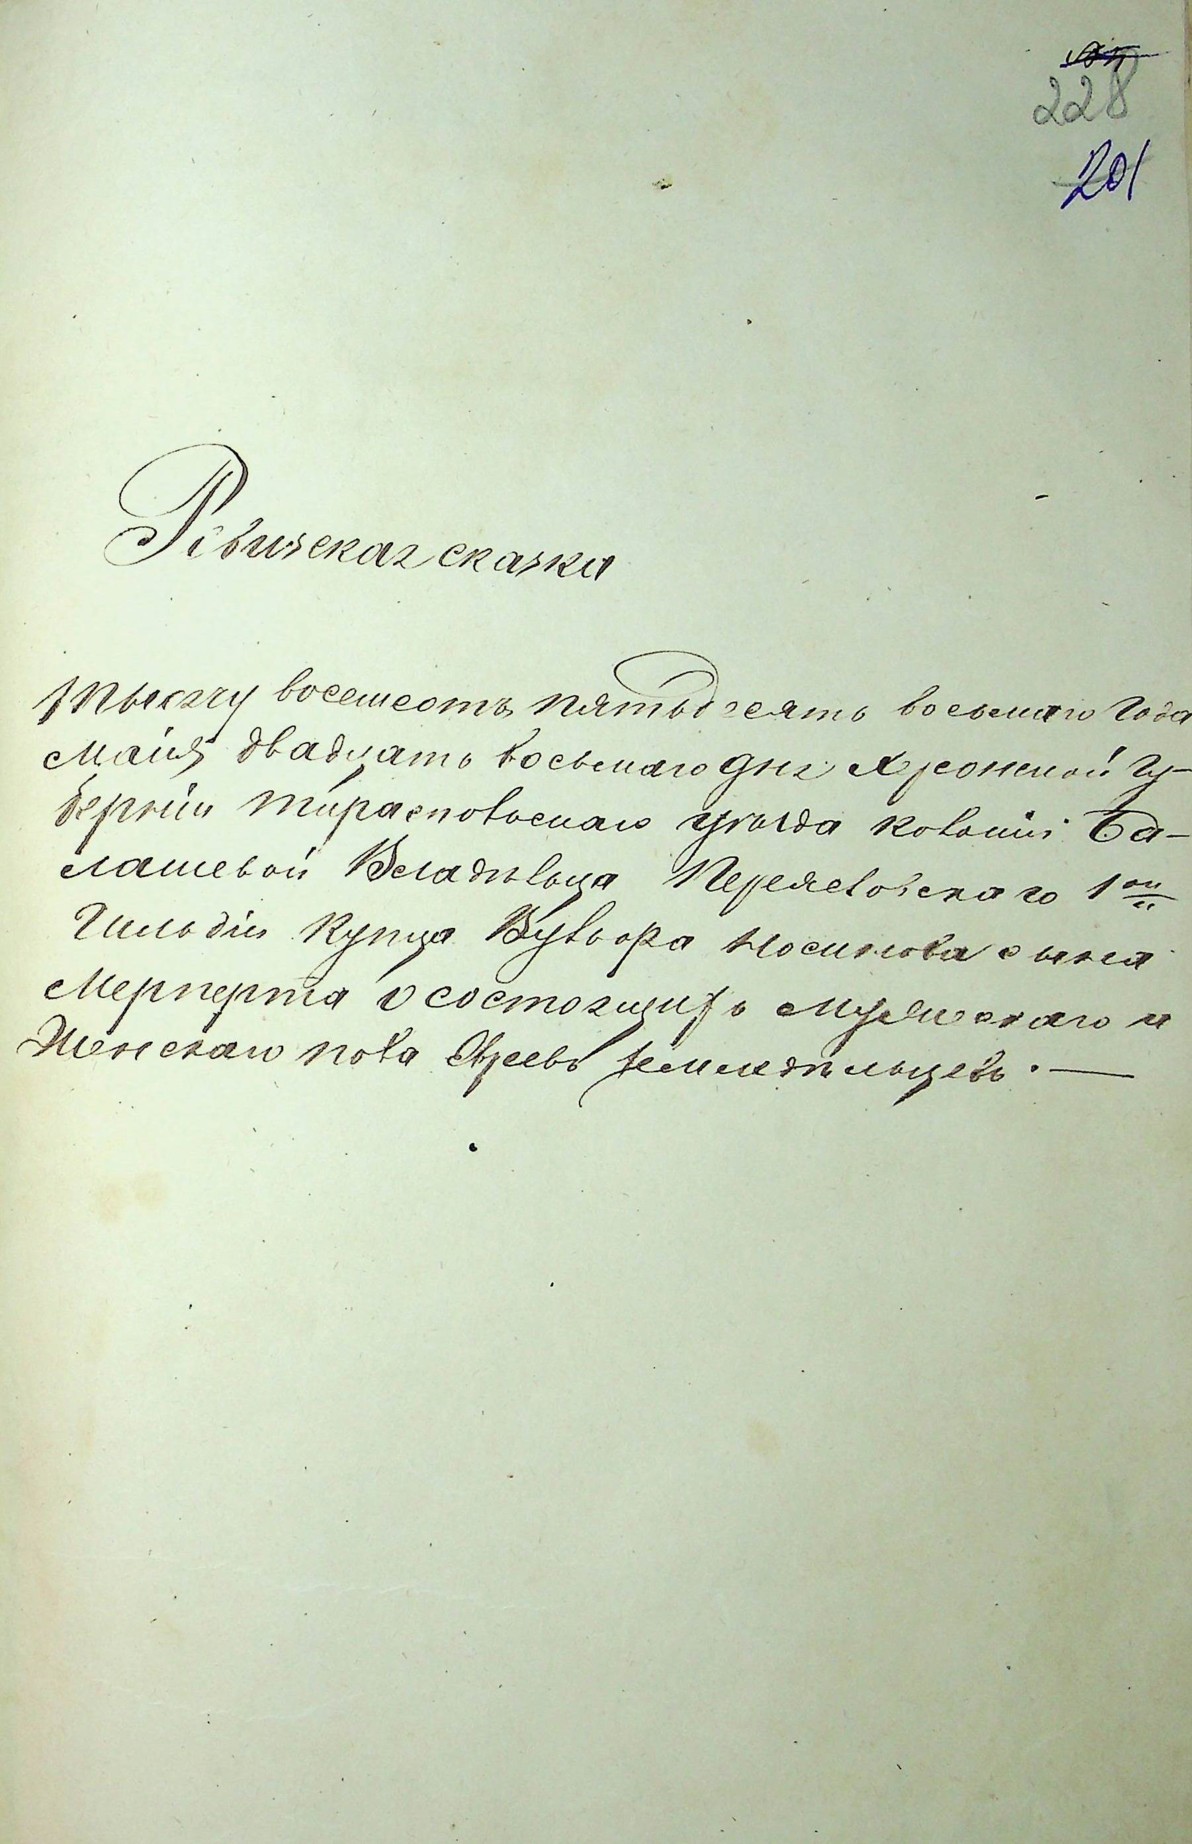 228
201
Ревизская сказка
Тысячу восемсотъ пятьдесятъ восьмаго Года
Маия двадцать восьмаго дня Херсонской Гу-
берніи Тираспольскаго уѣзда колоніи Ба-
лашевой Владѣльца 1ой
Гильдіи Купца Вульфа Иосиповa сына
Мерперта о состоящихъ мужескаго и
Женскаго пола Евреевъ земледѣльцевъ. —